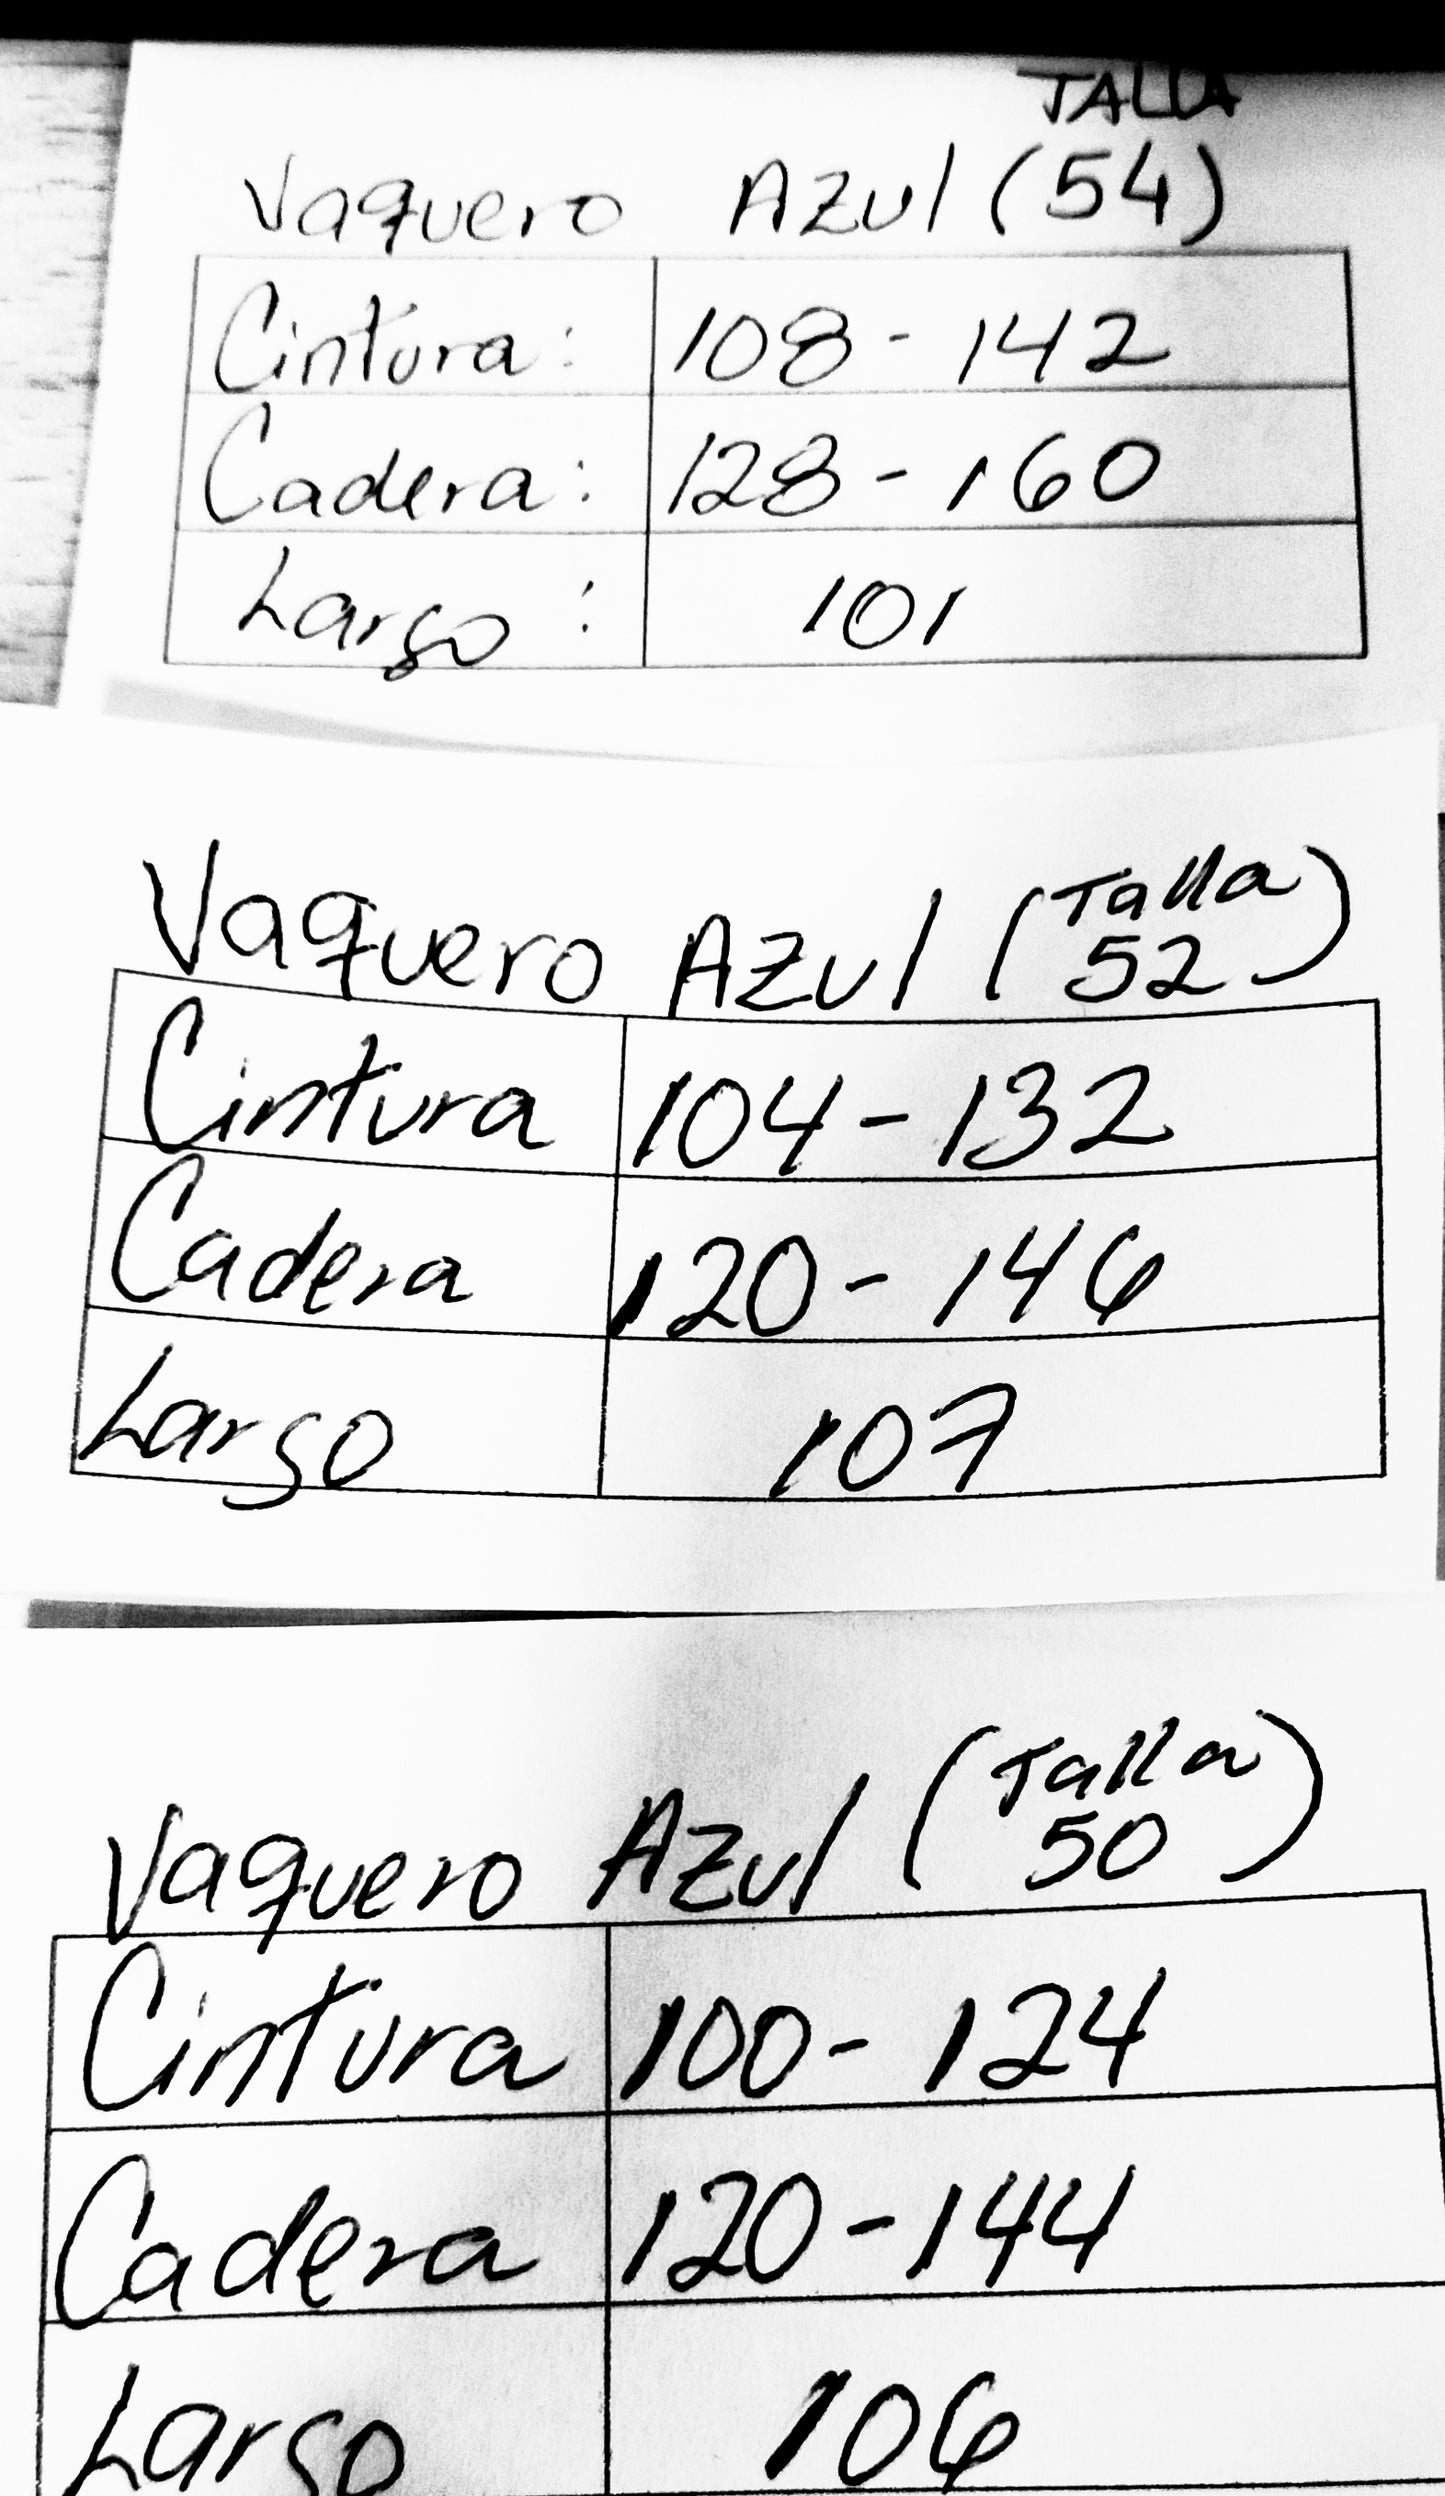 TALLA
Vaquero Azul (54)
Cintura: 108 - 142
Cadera: 128 - 160
Largo: 101
Vaquero Azul (Talla 52)
Cintura 104 - 132
Cadera 120 - 146
Largo 107
Vaquero Azul (Talla 50)
Cintura 100 - 124
Cadera 120 - 144
Largo 106